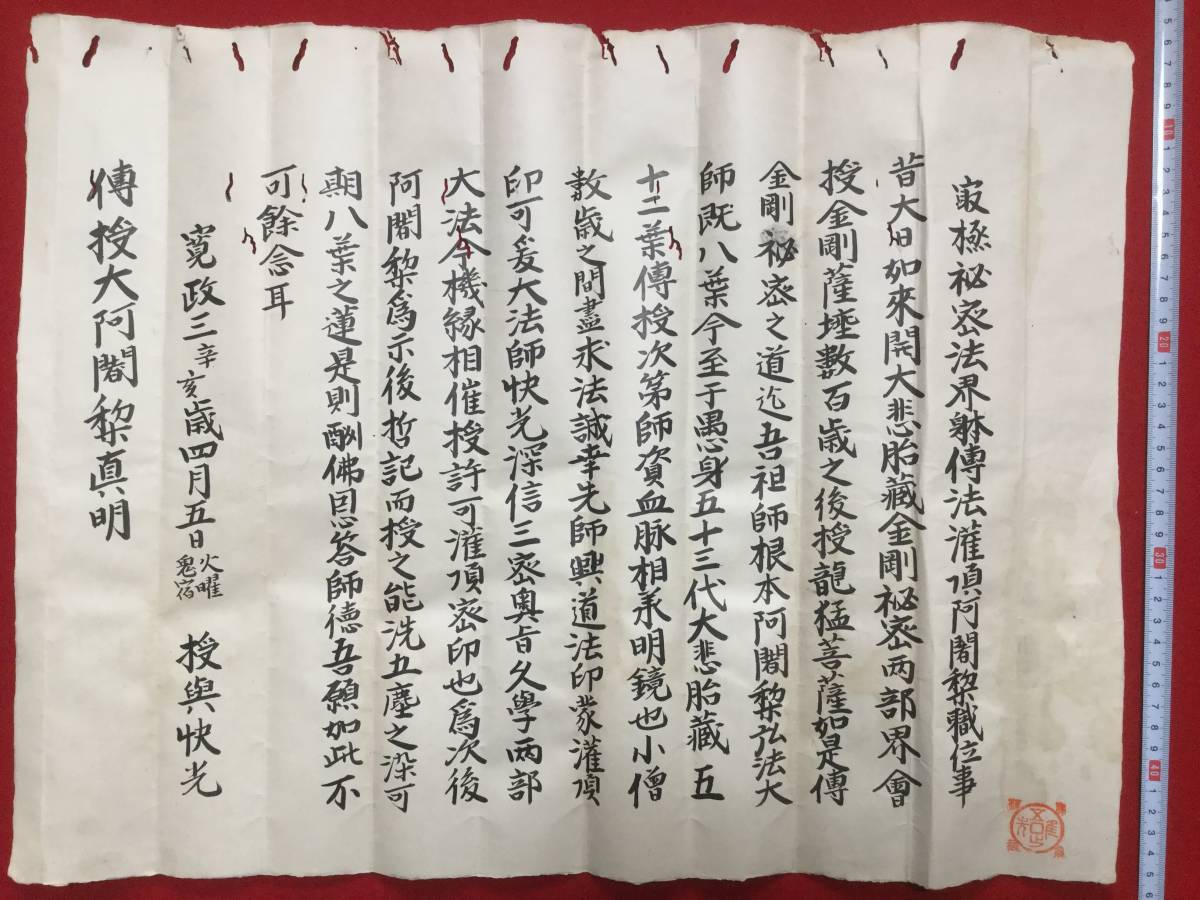 㝡極祕密法界躰傳法灌頂阿闍黎職位事
昔大日如來開大悲胎藏金剛祕密两部界會
授金剛薩埵數百歳之後授龍猛菩薩如是傳
金剛祕密之道迄吾祖師根本阿闍黎弘法大
師既八葉今至于愚身五十三代大悲胎藏五
十二葉傳授次第師資血脉相承明鏡也小僧
数歳之間盡求法誠幸先師興道法印蒙灌頂
印可爰大法師快光深信三密奥旨久學两部
大法今機縁相催授許可灌頂密印也爲次後
阿闍黎爲示後哲記而授之能洗五塵之染可
期八葉之蓮是則酬佛恩答師徳吾願如此不
可餘念耳
寛政三辛亥歳四月五日火曜鬼宿 授與快光
傳授大阿闍黎真明